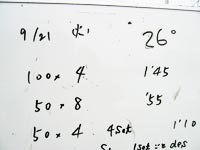 9/21 水 26°
100 × 4 1'45
50 × 8 '55
50 × 4 4set 1'10
1set des